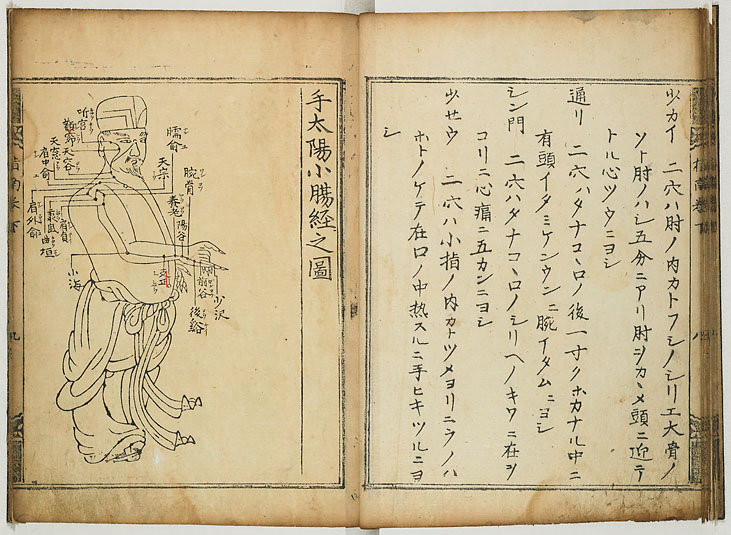 少カイ 二穴ハ肘ノ内カトフシノシリエ大骨ノ
ソト肘ノハシ五分ニアリ肘ヲカヽメ頭ニ迎テ
トル心ツウニヨシ
通リ 二穴ハタナコヽロノ後一寸クホカナル中ニ
有頭イタミケンウンニ腕イタムニヨシ
シン門 二穴ハタナコヽロノシリヘノキワニ在シ
コリニ心痛ニ五カンニヨシ
少せウ 二穴ハ小指ノ内カトツメヨリニラノハ
ホトノケテ在ロノ中熱スルニ手ヒキツルニヨ
シ
指南巻下
八
手太陽小腸経之圖
臑俞
天宗
腕骨
養老
陽谷
前谷
少沢
後谿
小海
肩貞
曲垣
肩外俞
肩中俞
天窓
天容
指南巻下
九